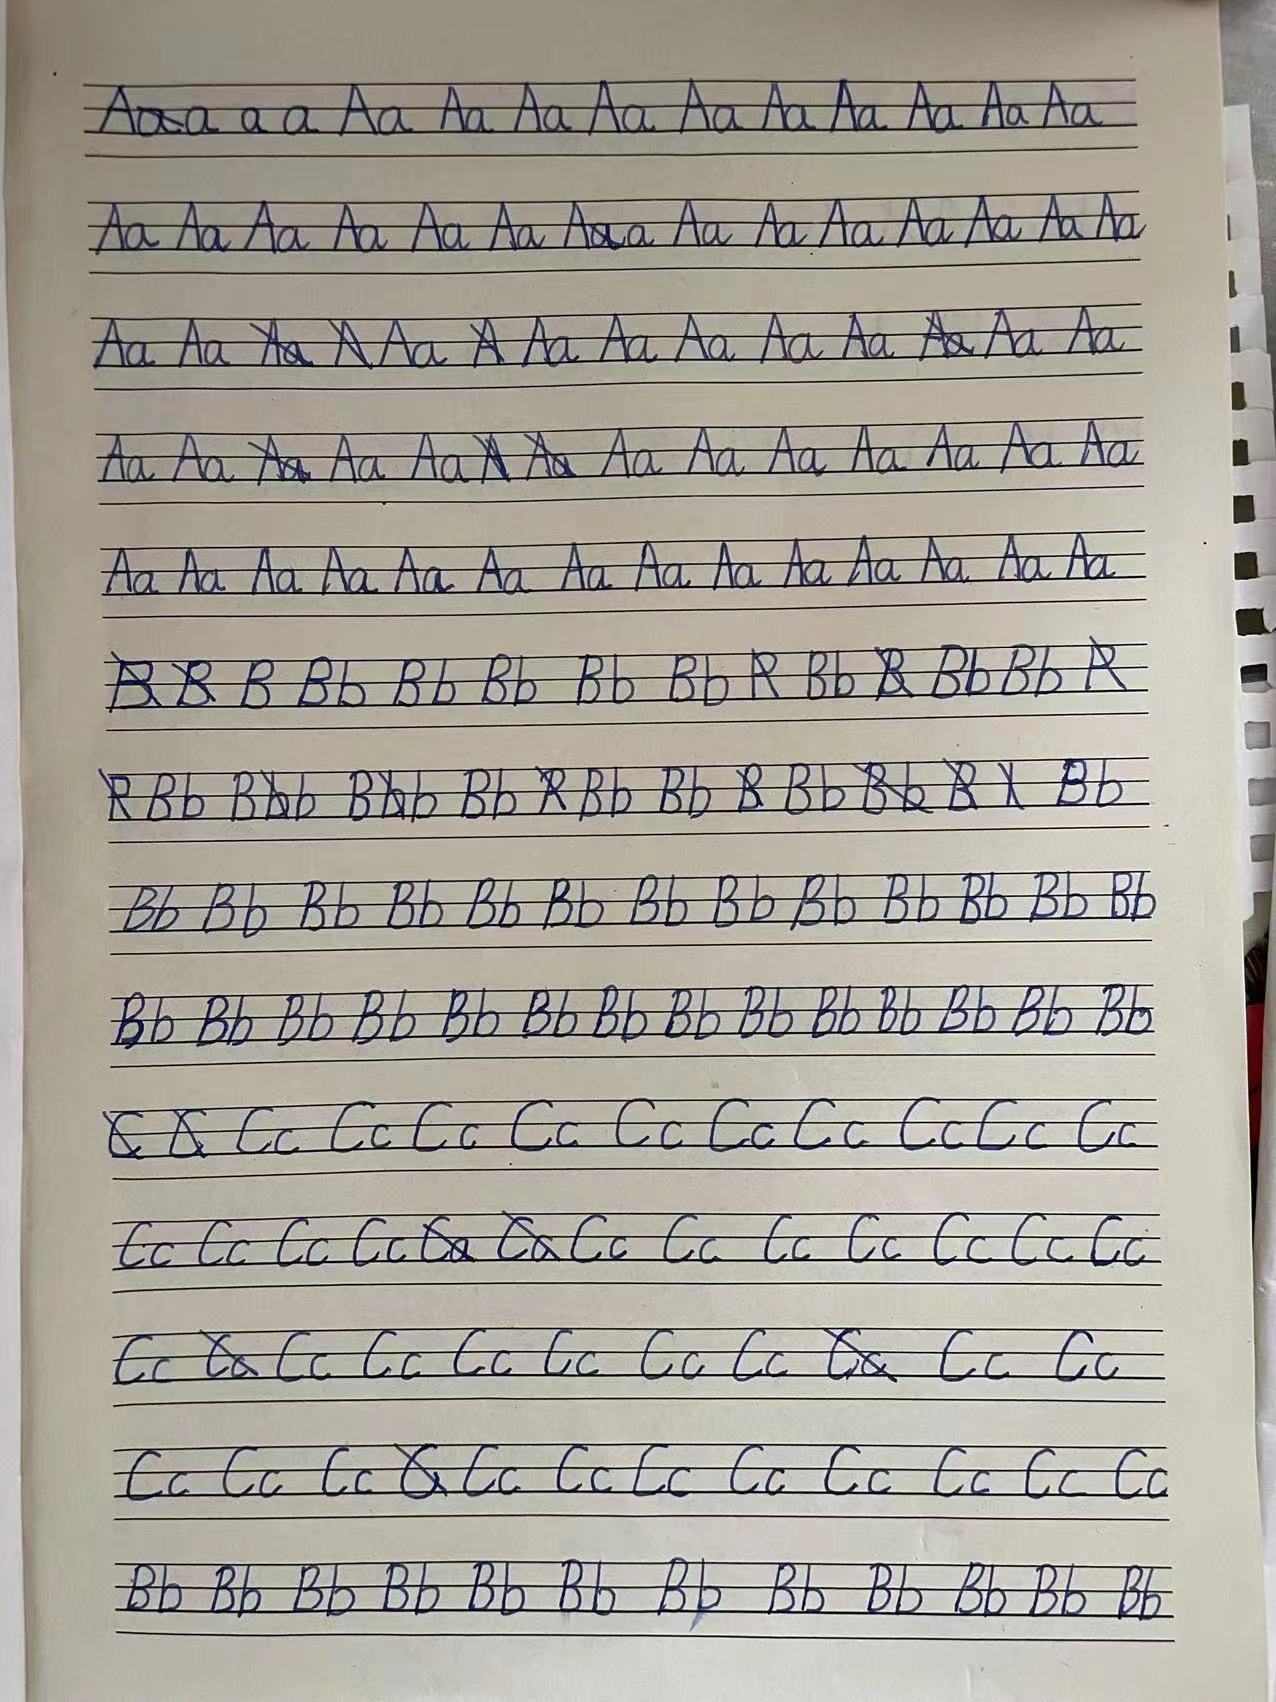 Aa a a a Aa Aa Aa Aa Aa Aa Aa Aa Aa Aa
Aa Aa Aa Aa Aa Aa Aa a Aa Aa Aa Aa Aa Aa Aa
Aa Aa Aa A Aa A Aa Aa Aa Aa Aa Aa Aa Aa
Aa Aa Aa Aa Aa A Aa Aa Aa Aa Aa Aa Aa Aa
Aa Aa Aa Aa Aa Aa Aa Aa Aa Aa Aa Aa Aa Aa
B B B Bb Bb Bb Bb Bb R Bb B Bb Bb R
R Bb Bbb Bbb Bb R Bb Bb B Bb Bb B Bb
Bb Bb Bb Bb Bb Bb Bb Bb Bb Bb Bb Bb Bb
Bb Bb Bb Bb Bb Bb Bb Bb Bb Bb Bb Bb Bb Bb
C C Cc Cc Cc Cc Cc Cc Cc Cc Cc Cc
Cc Cc Cc Cc Ca Ca Cc Cc Cc Cc Cc Cc Cc
Cc Ca Cc Cc Cc Cc Cc Cc Ca Cc Cc
Cc Cc Cc C Cc Cc Cc Cc Cc Cc Cc Cc
Bb Bb Bb Bb Bb Bb Bb Bb Bb Bb Bb Bb